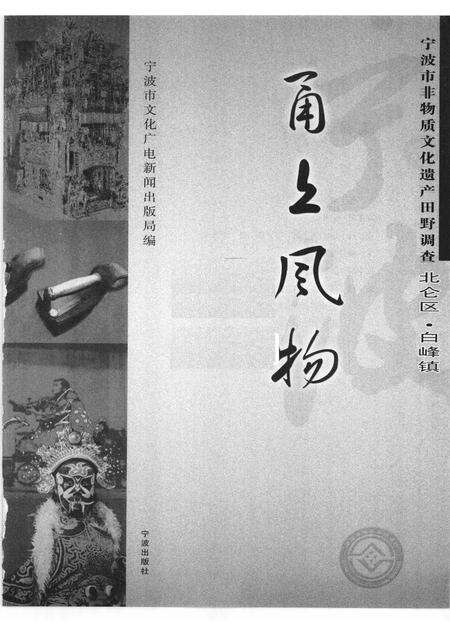 宁波市非物质文化遗产田野调查
北仑区·白峰镇
甬上风物
宁波市文化广电新闻出版局编
宁波出版社